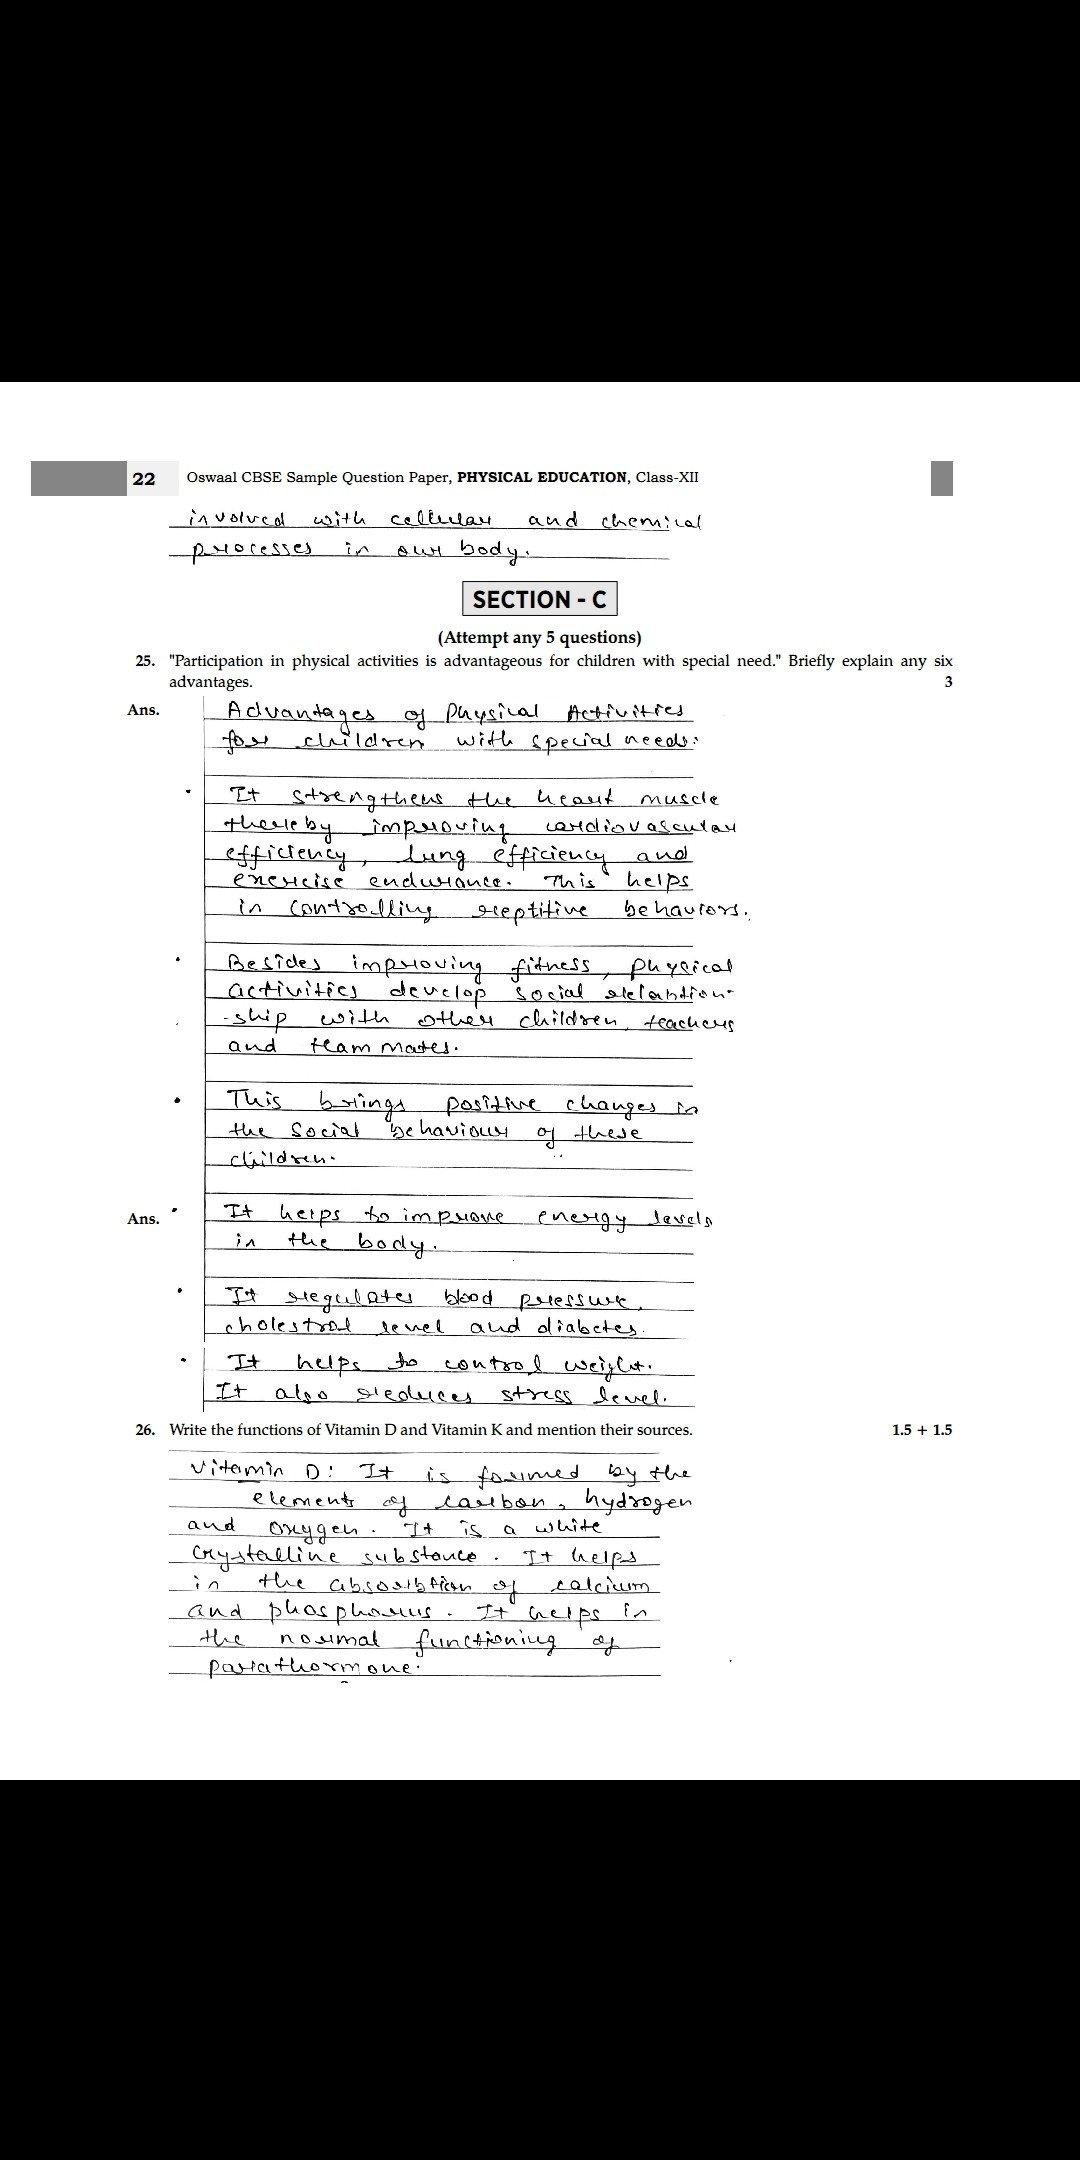 22 Oswaal CBSE Sample Question Paper, PHYSICAL EDUCATION, Class-XII
involved with cellular and chemical
processes in our body.
SECTION - C
(Attempt any 5 questions)
25. "Participation in physical activities is advantageous for children with special need." Briefly explain any six
advantages. 3
Ans. Advantages of Physical Activities
for children with special needs:
• It strengthens the heart muscle
thereby improving cardiovascular
efficiency, lung efficiency and
exercise endurance. This helps
in controlling reptitive behaviors.
• Besides improving fitness, physical
activities develop social relation-
-ship with other children, teachers
and team mates.
• This brings positive changes in
the social behaviour of these
children.
Ans. • It helps to improve energy levels
in the body.
• It regulates blood pressure,
cholestrol level and diabetes.
• It helps to control weight.
It also reduces stress level.
26. Write the functions of Vitamin D and Vitamin K and mention their sources. 1.5 + 1.5
Vitamin D: It is formed by the
elements of carbon, hydrogen
and oxygen. It is a white
crystalline substance. It helps
in the absorbtion of calcium
and phosphorus. It helps in
the normal functioning of
parathormone.